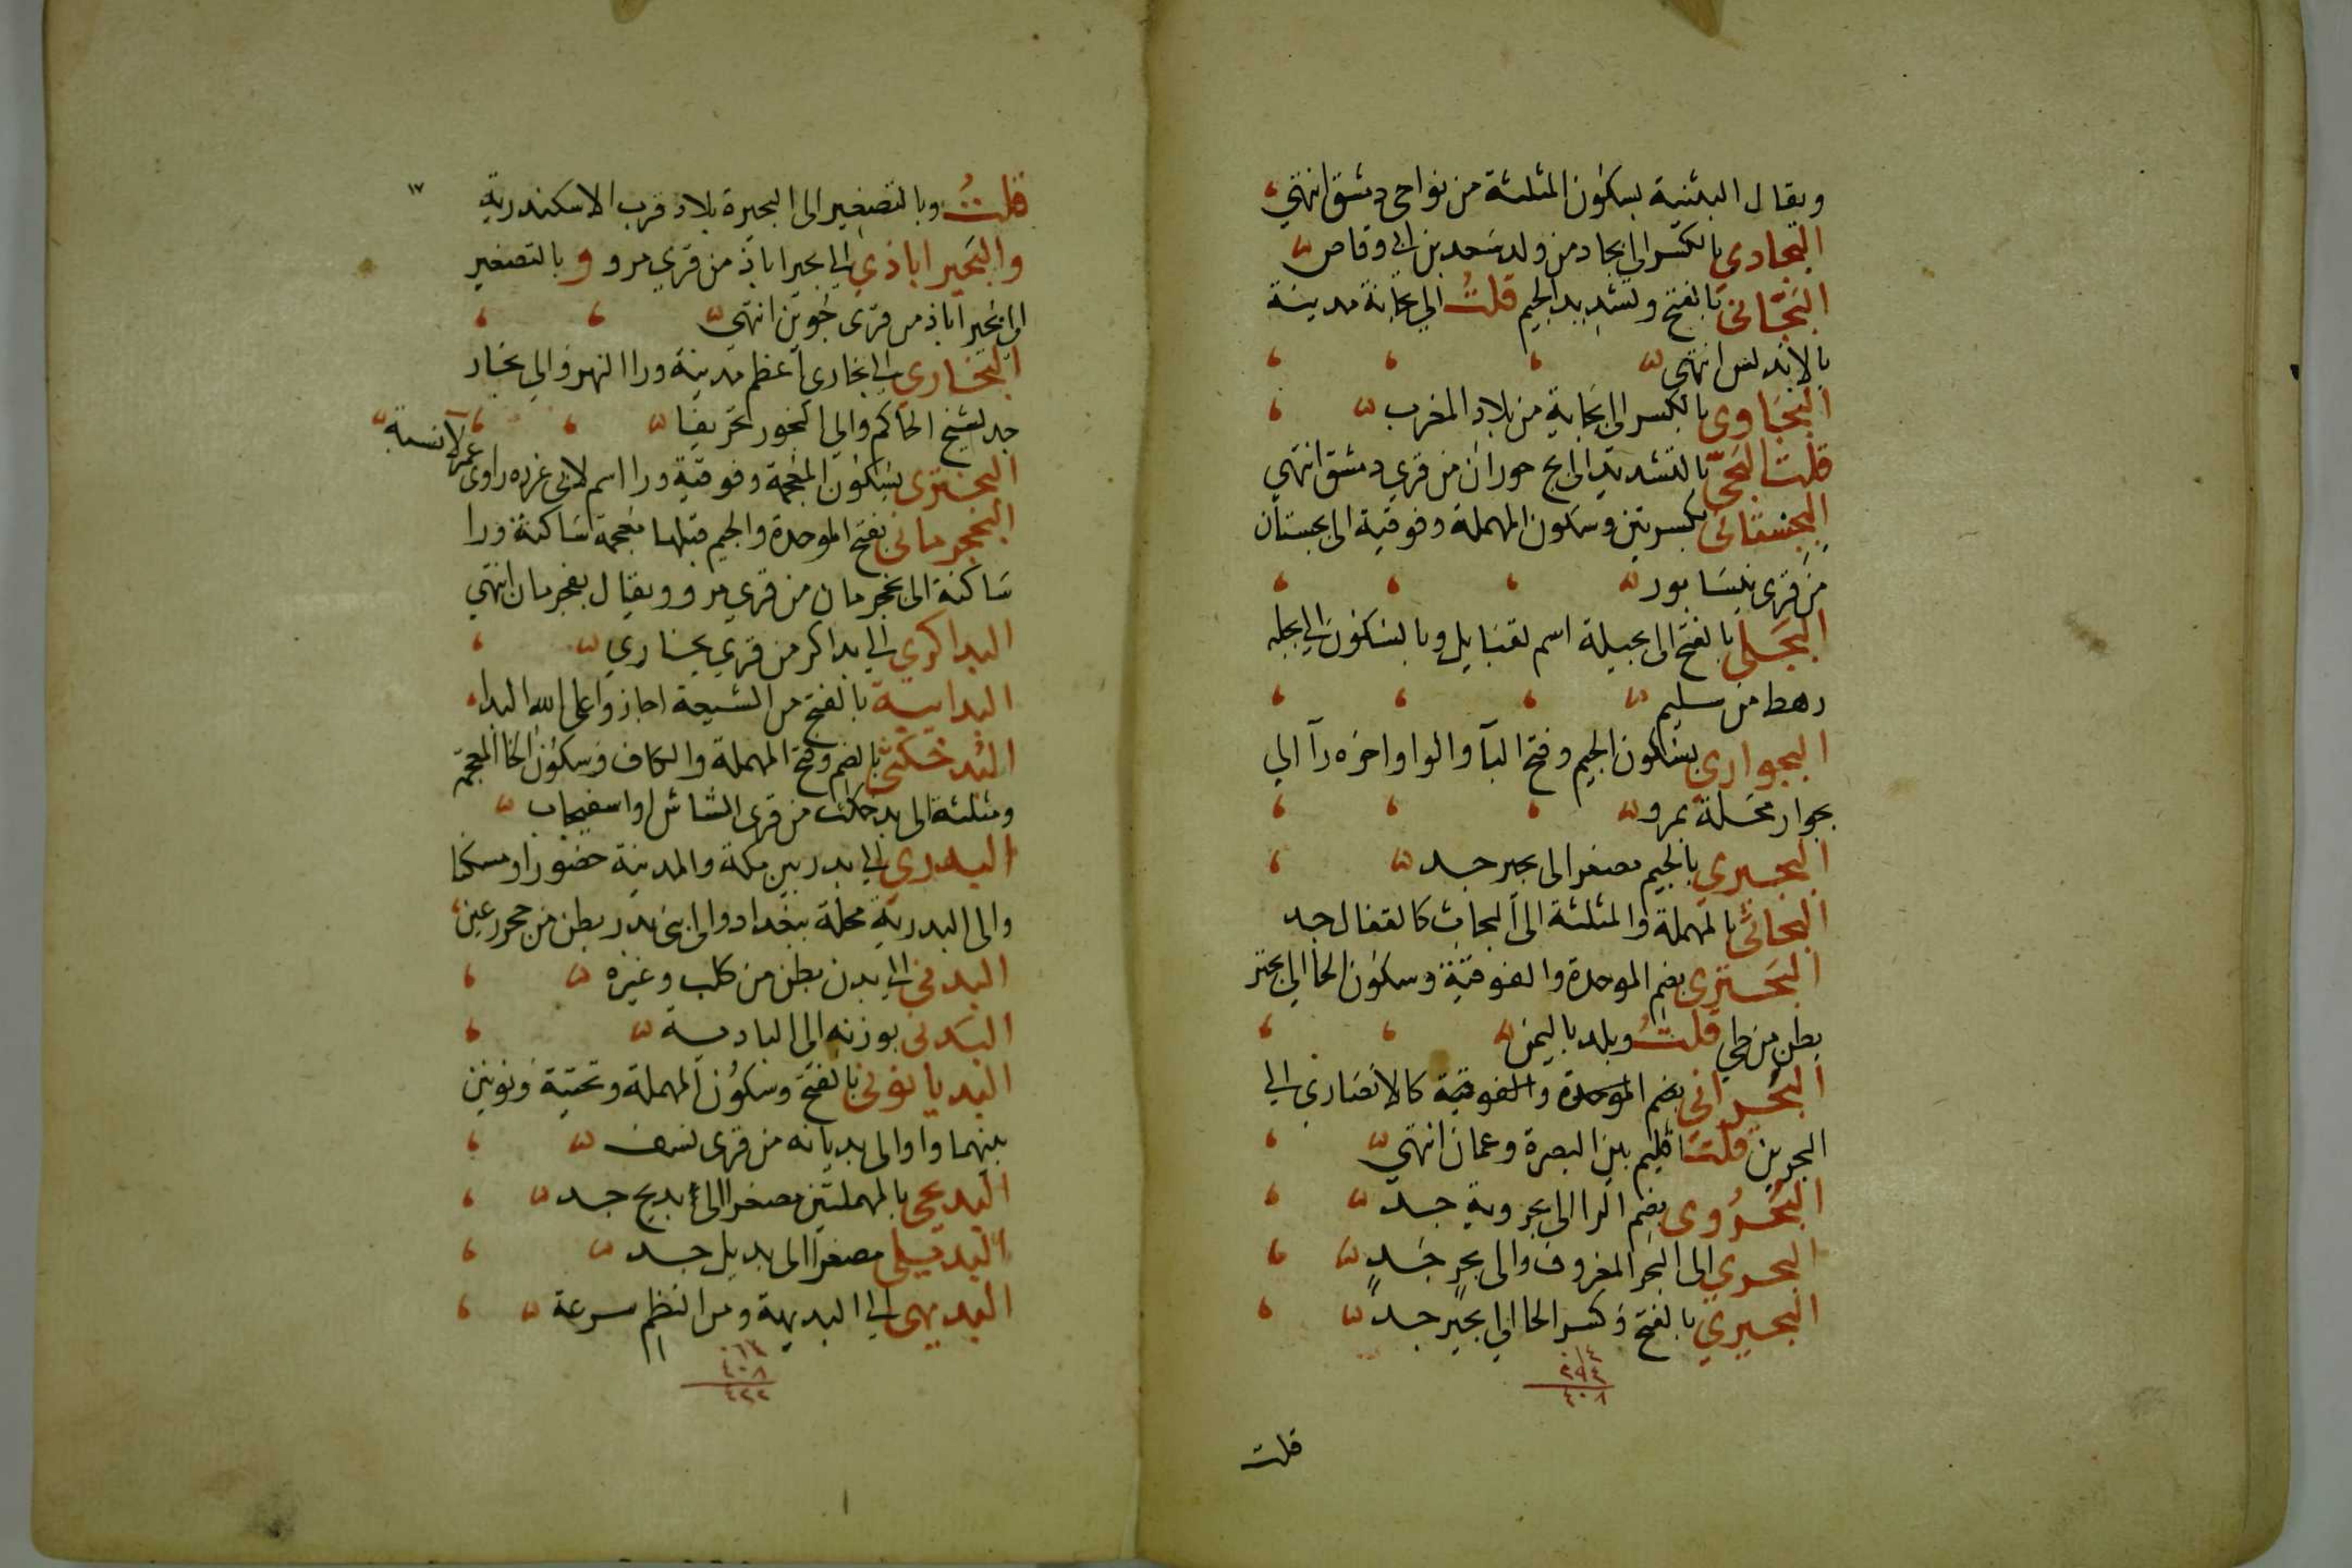 ويقال البثنية بسكون المثلثة من نواحى دمشق انتهى
البجادي بالكسر الى بجاد من ولد سعد بن ابى وقاص
البجانى بالفتح وتشديد الجيم قلت الي بجانة مدينة
بالاندلس انتهى
البجاوى بالكسر الى بجاية من بلاد المغرب
قلت البجى بالتشديد الى بج حوران من قري دمشق انتهى
البجستانى بكسرتين وسكون المهملة وفوقية الى بجستان
من قرى نيسابور
البجلى بالفتح الى بجيلة اسم لقبايل وبالسكون الى بجله
رهط من سليم
البجوارى بسكون الجيم وفتح البآ والواو اخره رآ الي
بجوار محلة بمرو
البجيري بالجيم مصغرا الى بجير جد
البحاثى بالمهملة والمثلثة الى البحاث كالقفال جد
البحترى بضم الموحدة والفوقية وسكون الحا الي بحتر
بطن من طي قلت وبلد باليمن
البحرانى بضم الموحدة والفوقية كالانصارى الى
البحرين قلت اقليم بين البصرة وعمان انتهى
البحروى بضم الرا الى بحروية جد
البحري الى البحر المعروف والى بحر جد
البحيري بالفتح وكسر الحا الي بحير جد
١٤
٣٩٤
٤٠٨
قلت
١٧
قلت وبالتصغير الى البحيرة بلاد قرب الاسكندرية
والبحيراباذي الى بحيراباذ من قري مرو وبالتصغير
الى بحيراباذ من قرى جوين انتهى
البخاري الى بخارى اعظم مدينة ورا النهر والي بخار
جد لشيخ الحاكم والي البخور تحريفا
البخترى بسكون المعجمة وفوقية ورا اسم لابى غرزه راوى عمر لا نسبة
البخجرمانى بفتح الموحدة والجيم قبلها معجمة ساكنة ورا
ساكنة الى بخجرمان من قري مرو ويقال بغجرمان انتهى
البداكري الي بداكر من قري بخاري
البدايية بالفتح من الشيعة اجازوا على الله البدا
البدخكثى بالضم وفتح المهملة والكاف وسكون الخا المعجمة
ومثلثة الى بدخكث من قرى الشاش او اسفيجاب
البدري الى بدر بين مكة والمدينة حضورا ومسكنا
والى البدرية محلة ببغداد والى بنى بدر بطن من حجر رعين
البدنى الى بدن بطن من كلب وغيره
البدنى بوزنه الى البادية
البديانونى بالفتح وسكون المهملة وتحتية ونونين
بينهما واو الى بديانه من قرى نسف
البديحى بالمهملتين مصغرا الى بديح جد
البديلى مصغرا الى بديل جد
البديهى الى البديهة ومن النظم سرعة
١٤
٤٠٨
٤٢٢